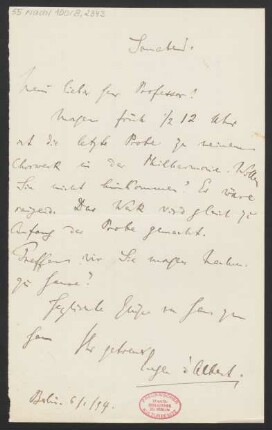 55 Nachl 100/B, 2843
Sonnabend.
Mein lieber Herr Professor!
Morgen früh ½ 12 Uhr
ist die letzte Probe zu meinem
Chorwerk in der Philharmonie. Wollen
Sie nicht hinkommen? Es wäre
reizend. Das Werk wird gleich zu
Anfang der Probe gemacht.
Treffen wir Sie morgen Nachm.
zu Hause?
Herzlichste Grüße von Haus zu
Haus Ihr getreuer
Eugen d'Albert.
Berlin. 6/1/94.